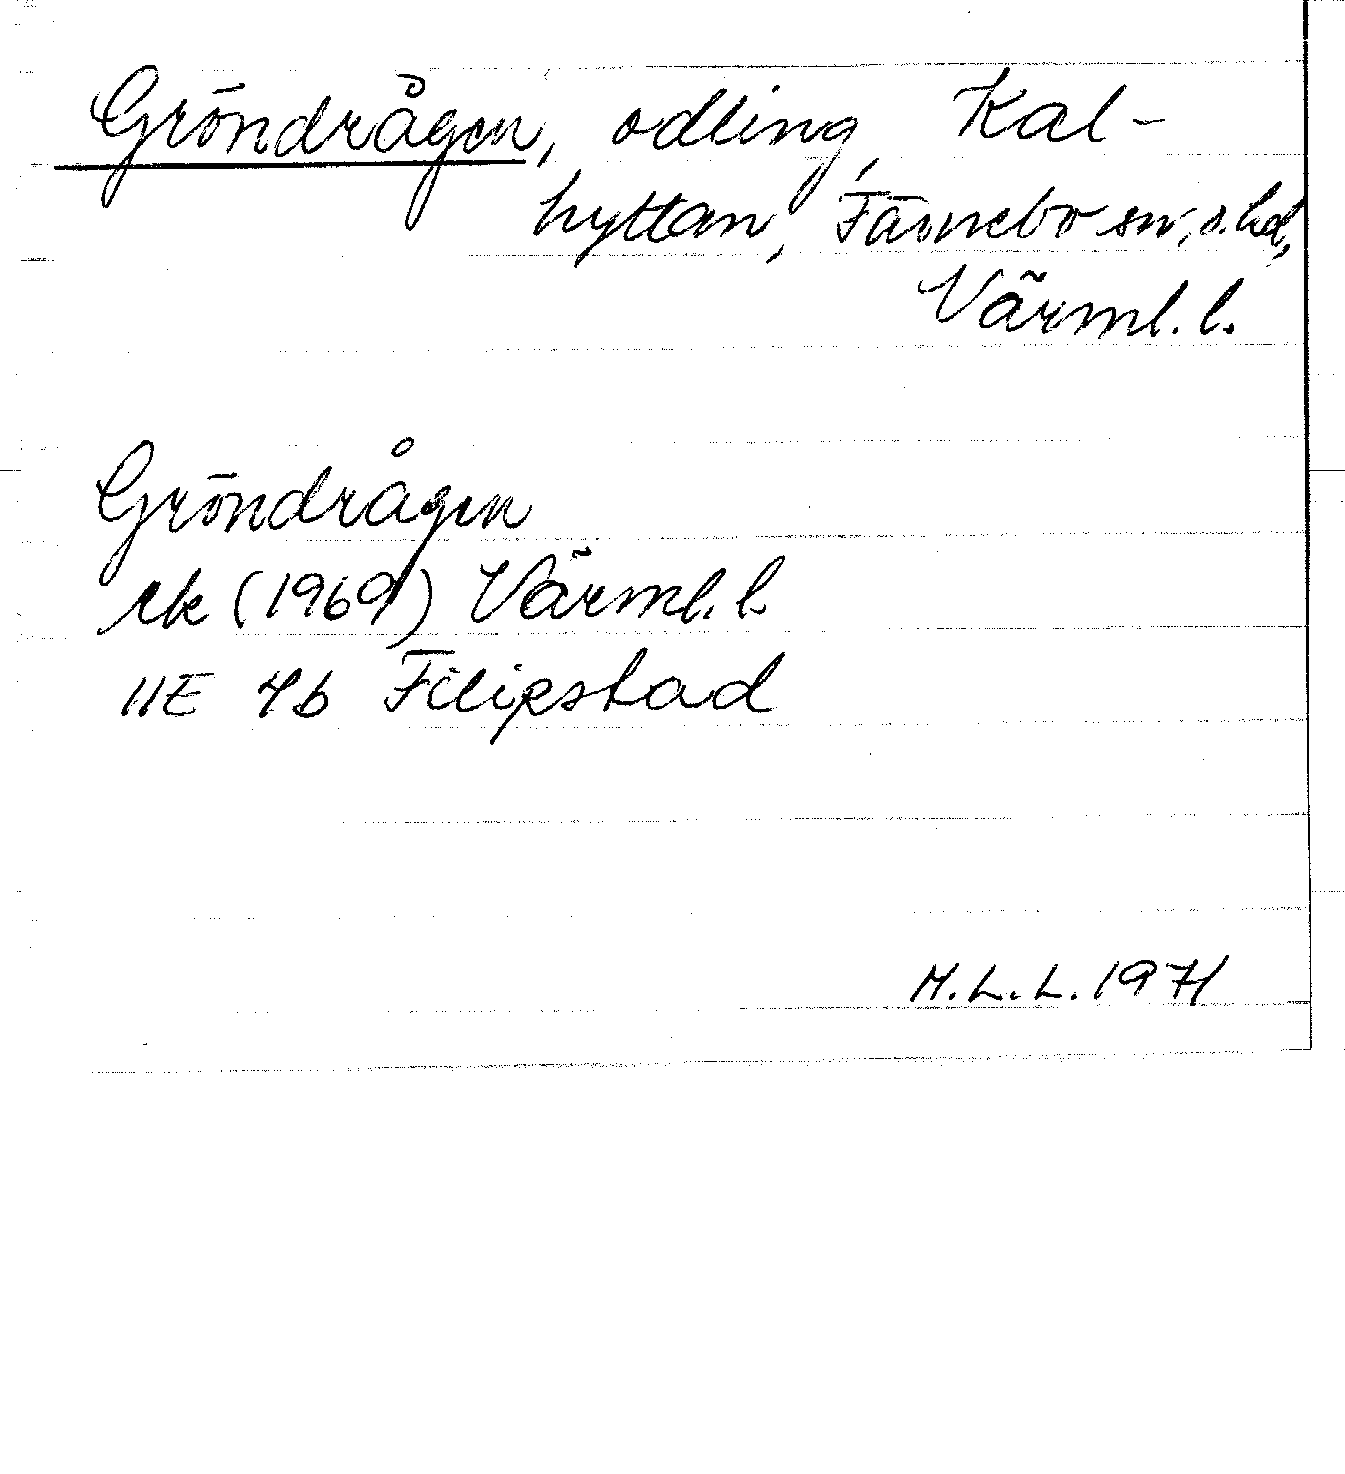 Gröndrågen, odling, Kal-
hyttan, Färnebo sn, s. hd,
Värml. l.
Gröndrågen
rk (1969) Värml. l.
11E 4b Filipstad
M.L.L. 1971